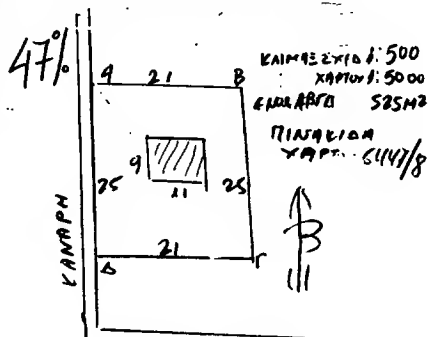 47%
Α 21 Β
ΚΛΙΜΑΞ ΣΧΕΔ 1:500
ΧΑΡΤΟΥ 1:5000
ΕΜΒΑ 525Μ2
ΠΙΝΑΚΙΔΑ
ΧΑΡΤ. 6447/8
9
11
25 25
21
Δ Γ
ΚΑΝΑΡΗ
Β